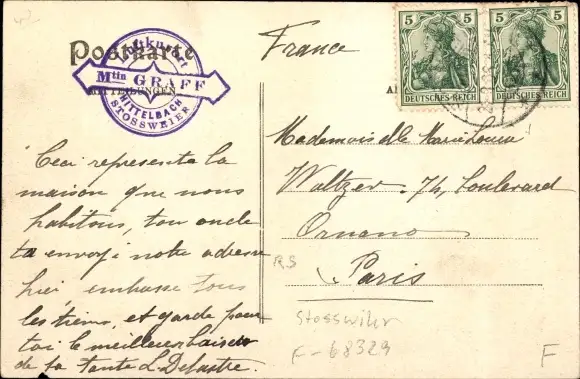 Postkarte
Luftkurort
Mtin GRAFF
MITTELBACH
STOSSWEIER
MITTEILUNGEN
France
5 5
5 5
DEUTSCHES REICH
DEUTSCHES REICH
Mademoiselle Marie Louise
Waltzer 74, boulevard
Ornano
Paris
Ceci représente la
maison que nous
habitons, ton oncle
t'a envoyé notre adresse
hier embrasse tous
les tiens, et garde pour
toi le meilleur baiser
de ta Tante L Delastre.
RS
Stosswihr
F-68329
F